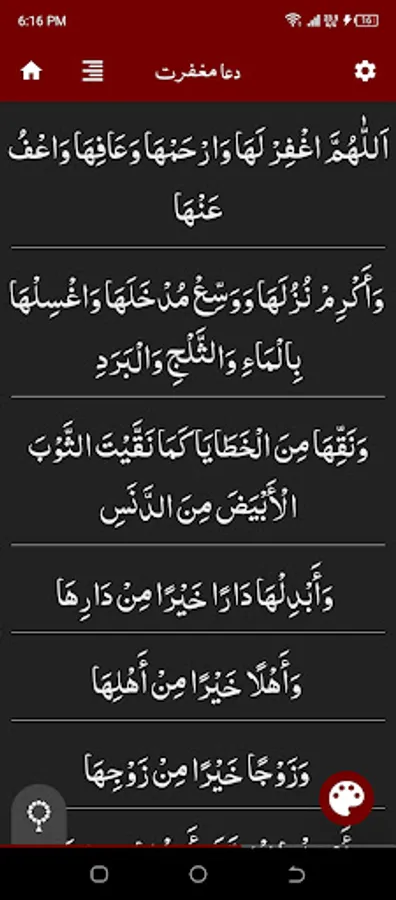 6:16 PM
16
دعا مغفرت
اَللّٰهُمَّ اغْفِرْ لَهَا وَارْحَمْهَا وَعَافِهَا وَاعْفُ
عَنْهَا
وَأَكْرِمْ نُزُلَهَا وَوَسِّعْ مُدْخَلَهَا وَاغْسِلْهَا
بِالْمَاءِ وَالثَّلْجِ وَالْبَرَدِ
وَنَقِّهَا مِنَ الْخَطَايَا كَمَا نَقَّيْتَ الثَّوْبَ
الْأَبْيَضَ مِنَ الدَّنَسِ
وَأَبْدِلْهَا دَارًا خَيْرًا مِنْ دَارِهَا
وَأَهْلًا خَيْرًا مِنْ أَهْلِهَا
وَزَوْجًا خَيْرًا مِنْ زَوْجِهَا